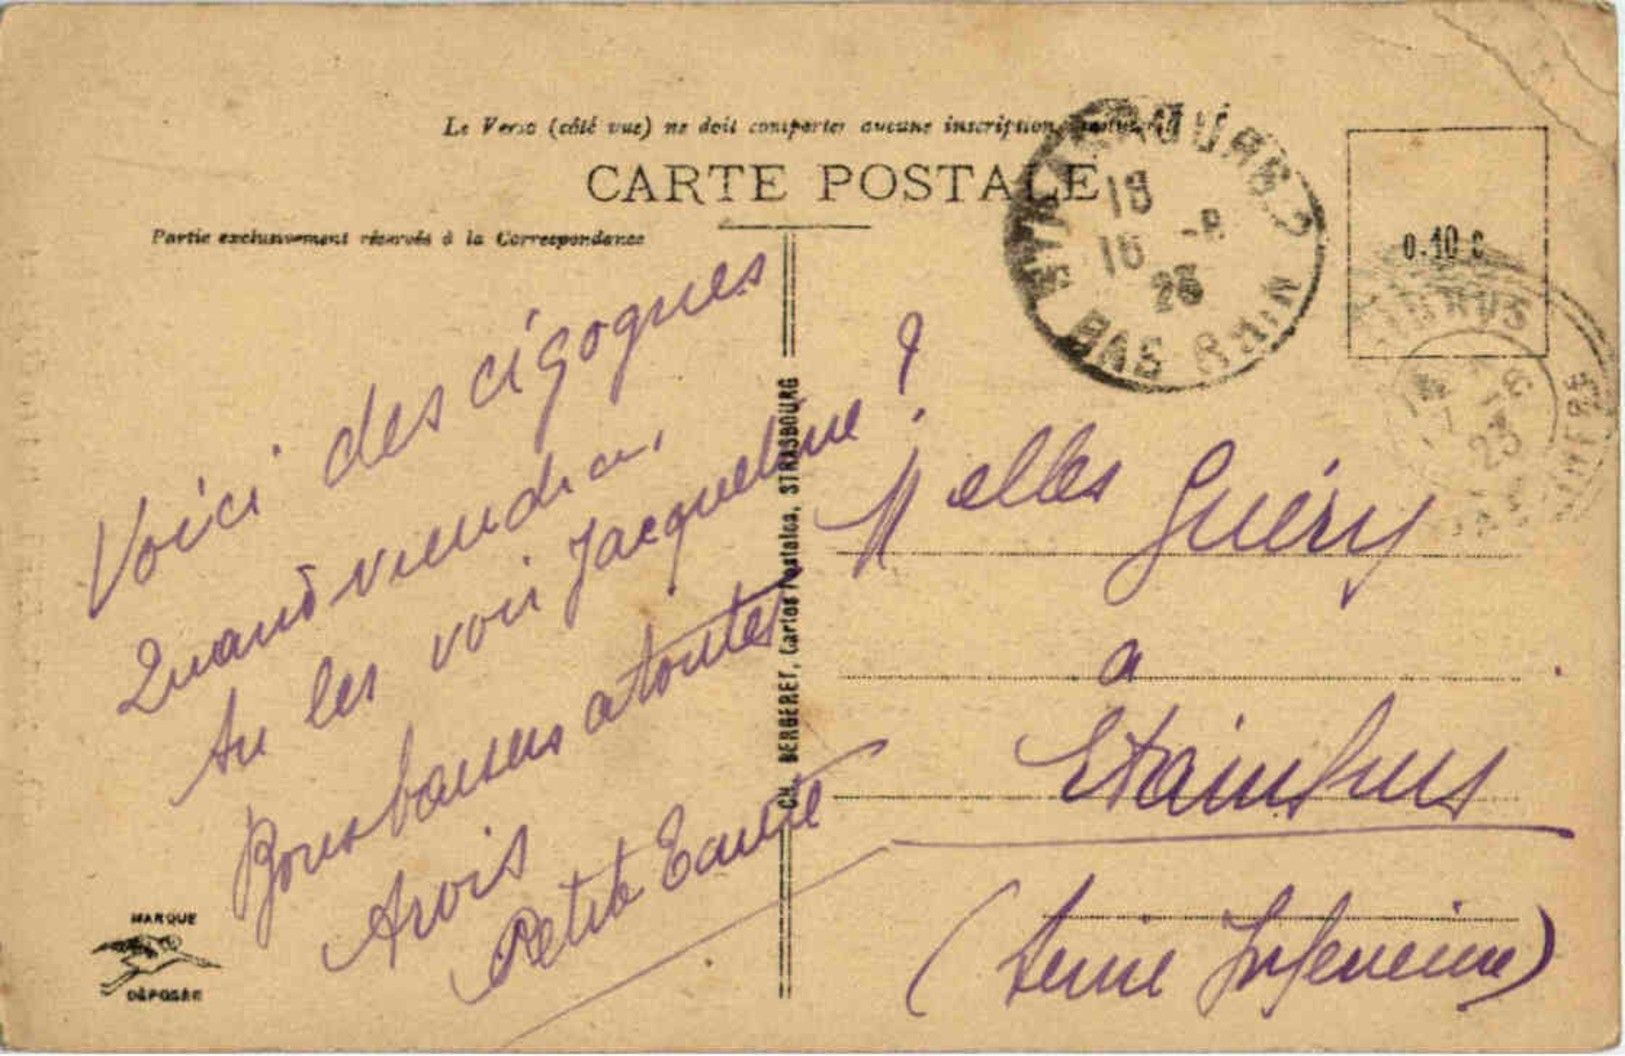 Le Verso (côté vue) ne doit comporter aucune inscription
CARTE POSTALE
Partie exclusivement réservée à la Correspondance
STRASBOURG 2
18
16 -8
23
BAS RHIN
0.10 c
23
Voici des cigognes
Quand viendra
tu les voir Jacqueline ?
Bons baisers a toutes
trois
Petite Tante
CH. BERGERET, Cartes Postales, STRASBOURG
Melles Guéry
a
Etainhus
(Seine Inferieure)
MARQUE
DÉPOSÉE